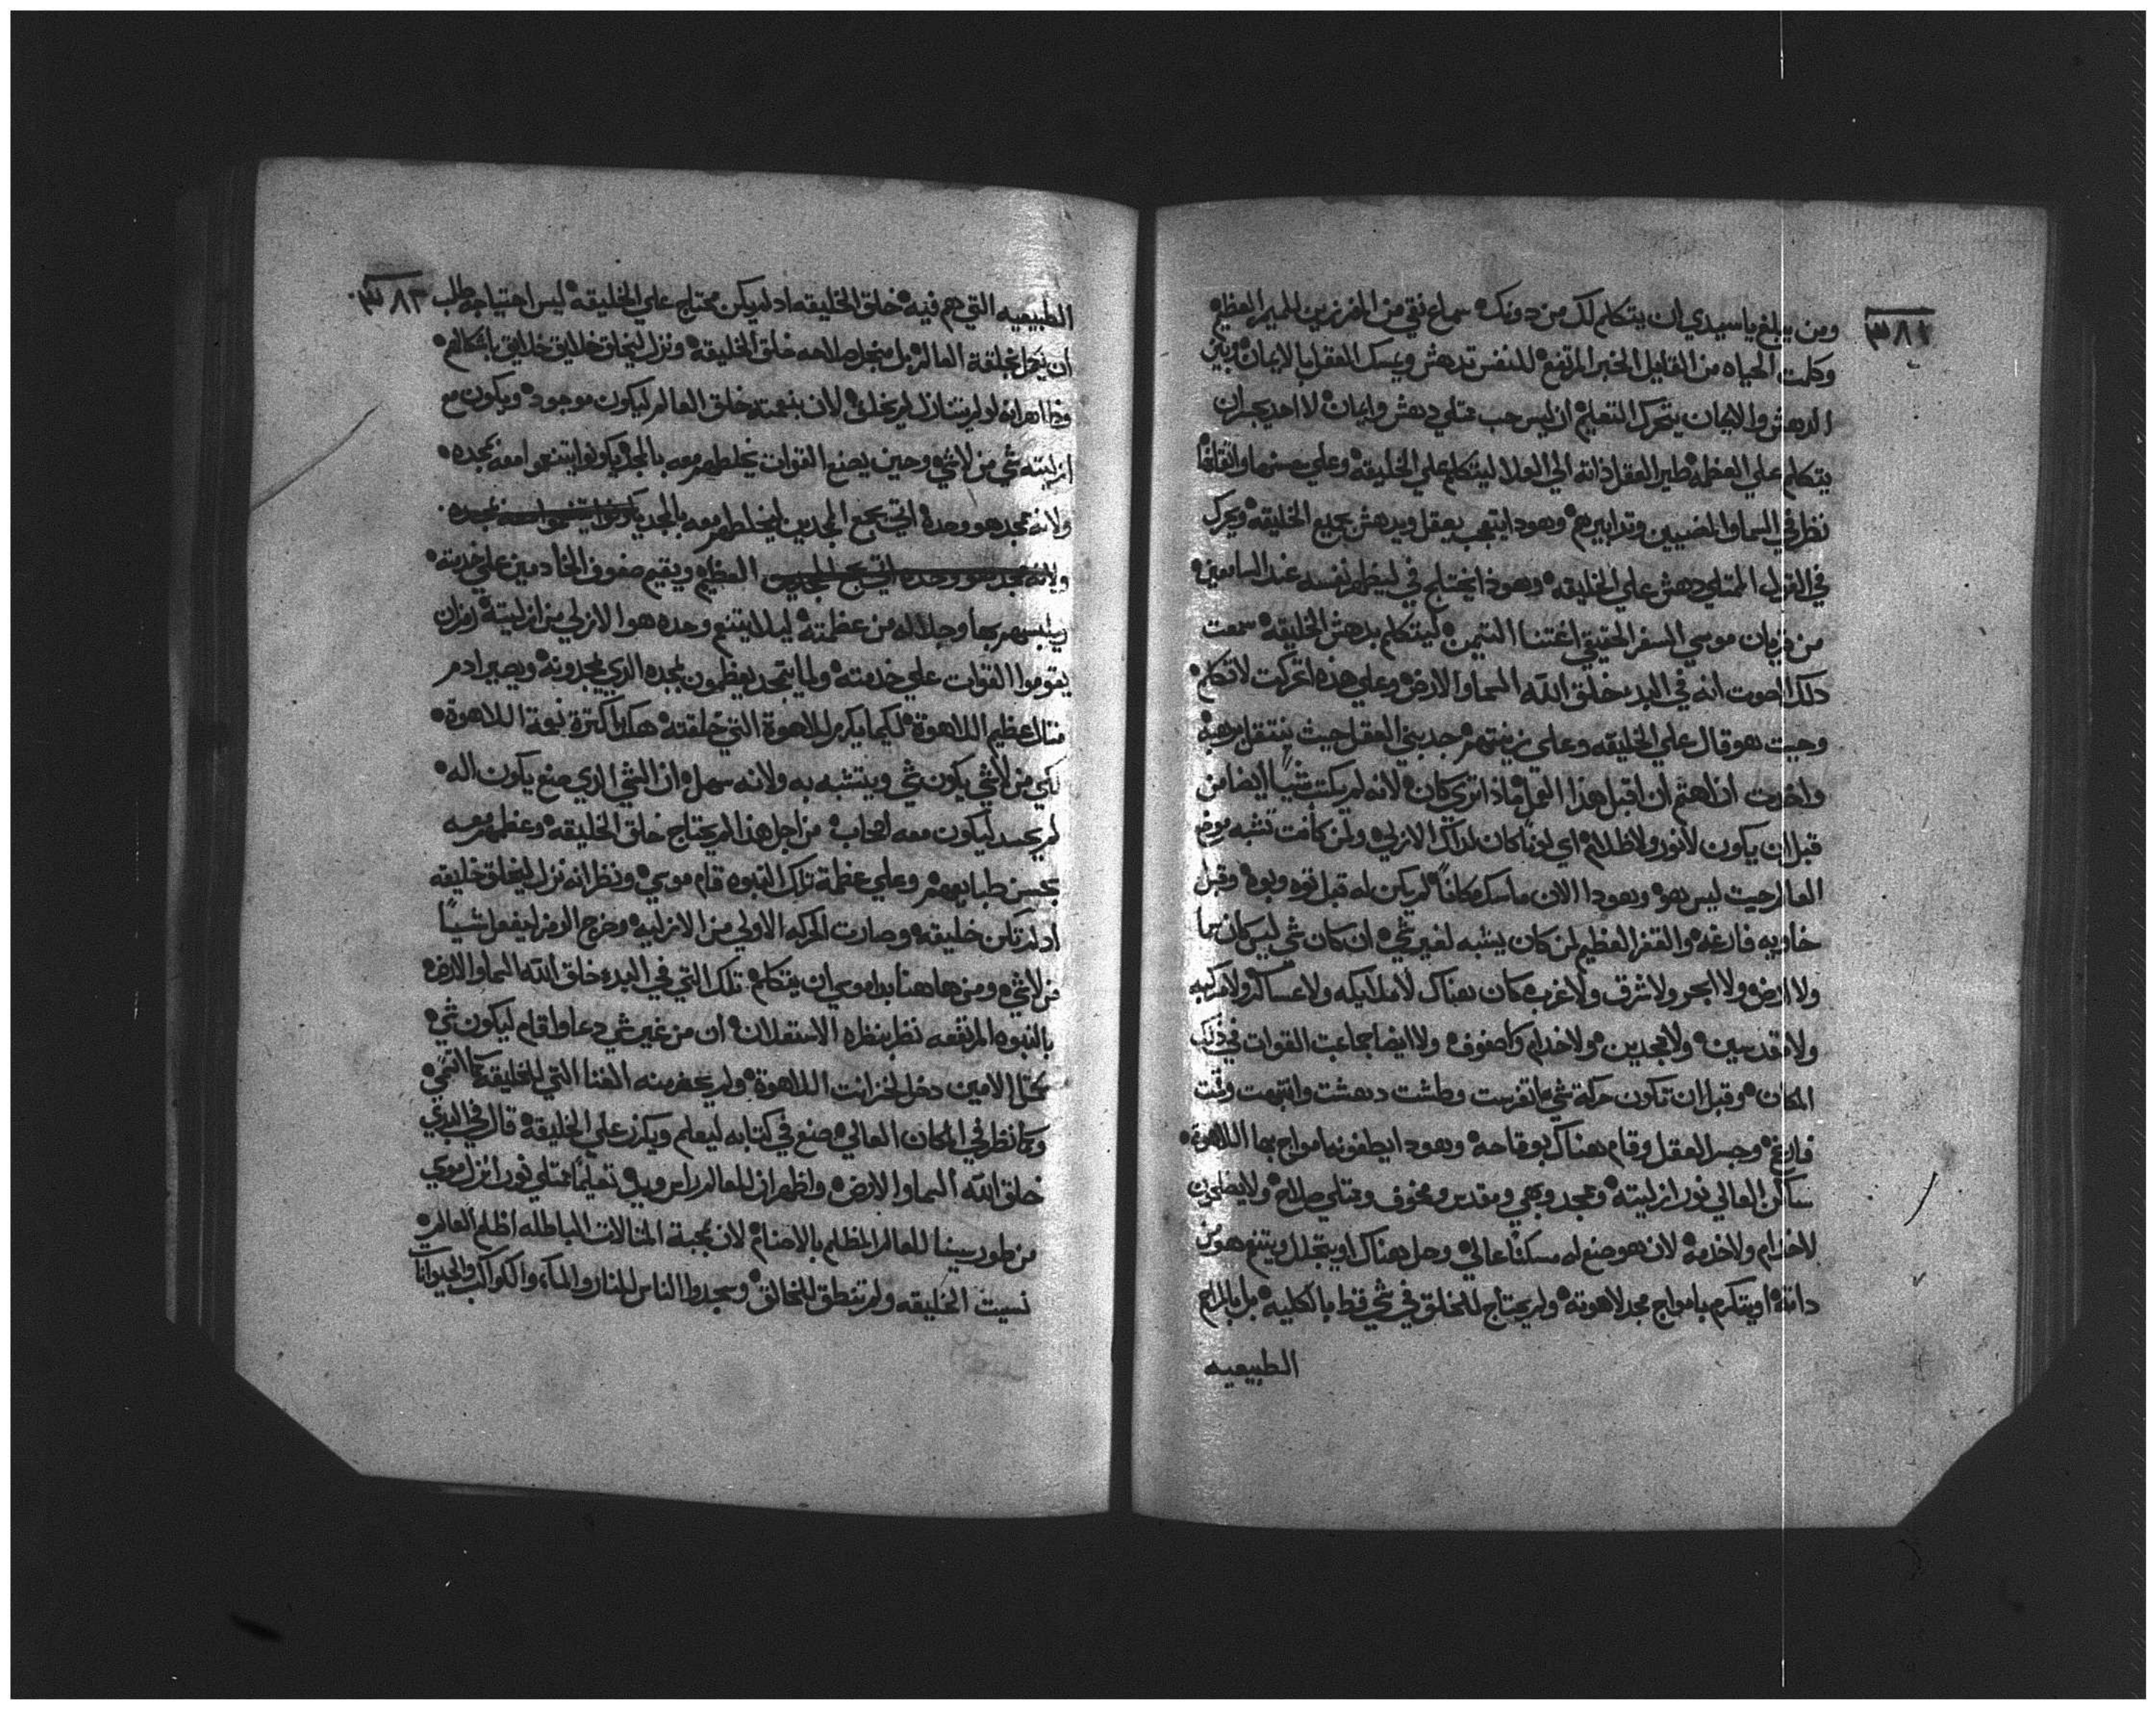 ومن يبلغ يا سيدي ان يتكلم لك من دونك سماع نقي من المفرزين للميمر العظيم
وكلت الحياه من القايل الخبر المرتفع للنفس تدهش ويمسك العقل بالايمان وبين
الدهش والايمان يتحرك التعليم ان ليس حب متلي دهش وايمان لا احد يجسر ان
يتكلم علي العظمه طير العقل ذاته الي العلا ليتكلم علي الخليقه وعلي حسنها واتقانها
نظر في السما والمضيين وتدابيرهم وهودا يتعجب بعقل ويدهش بجميع الخليقه ويحرك
في القول المتلي دهش علي الخليقه وهوذا يختلج في ليظهر نفسه عند السامعين
من موسي السفر الحقيقي اغتنا التيمن ليتكلم بدهش الخليقه سمعت
دلك الصوت انه في البدء خلق الله السما والارض وعلي هذه اتحركت لاتكلم
وحيت هو قال علي الخليقه وعلي زينتهم جدبني العقل حيث ينتقل برهبه
واخدت ان اهتم ان اقبل هذا القول ماذا تري كان لانه لم يكت شيا ايضا من
قبل ان يكون لا نور ولا ظلام اي لونا كان لدلك الازلي ولمن كانت تشبه موضع
العالم حيت ليس هو وهودا الان ماسك مكانا لم يكن له قبل توه وبوه وقبل
خاويه فارغه والقفر العظيم لمن كان يشبه لغير شي ان كان شي ليس كان سما
ولا ارض ولا ابحر ولا شرق ولا غرب كان هناك لا ملايكه ولا عساكر ولا مركبه
ولا مقدسين ولا ممجدين ولا خدام ولا صفوف ولا ايضا جماعت القوات في ذلك
المكان وقبل ان تكون حركة شي ما تفرست وطشت دهشت وانتهيت وقت
فارغ وجسر العقل وقام هناك بوقاحه وهودا يطفونه امواج بها اللاهوة
ساكن العالي نور ازليته وممجد وبهي ومقدس ومخوف ومتلي صلاح ولا يصلحون
لا خدام ولا خدمه لان هو صنع له مسكنا عالي وحل هناك او يتجلل ويتنعم هو من
داته او يتكرم بامواج مجد لاهوته ولم يحتاج للخلق في شي قط بالكليه بل بالمراحم
الطبيعيه
الطبيعيه التي هم فيه خلق الخليقه اد لم يكن محتاج علي الخليقه ليس احتياجه طلب
ان يكمل بخلقة العالم بل من اجل صلاحه خلق الخليقه ونزل ليخلق خلايق خلايق باشكالهم
وظاهر انه لو لم يتنازل لم يخلق لان بنعمته خلق العالم ليكون موجود ويكون مع
ازليته شي من لاشي وحين يصنع القوات يخلطهم معه بالمجد ليكونوا يتنعموا معه بمجده
ولانه مجد هو وحده التي يجمع المجدين ليخلطهم معه بالمجد
العظيم ويقيم صفوف الخادمين علي خدمته
ويلبسهم بها وجلاله من عظمته ليلا يتنعم وحده هو الازلي من ازليته
يقوموا القوات علي خدمته ولما يتمجد يعظمون بمجده الذي يمجدونه ويصير ادم
متال عظيم اللاهوة لكيما يكرم اللاهوة التي خلقته هكدا كترة نعمة اللاهوة
لكي من لاشي يكون شي ويتشبه به ولانه سهل ان الشي الذي صنع يكون اله
لم يحسد ليكون معه اصحاب من اجل هذا لم يحتاج خلق الخليقه وعظمهم معه
بحسن طبايعهم وعلي عظمة تلك النبوه قام موسي ونظر انه نزل ليخلق خليقه
اد لم تكن خليقه وصارت الحركه الاولي من الازليه وخرج الرمز ليفعل شيا
من لاشي ومن هاهنا بدا موسي ان يتكلم تلك التي في البدء خلق الله السما والارض
بالنبوه المرتفعه نظر بنظره الاستعلان ان من غير شي دعا واقام ليكون شي
الامين دخل لخزانت اللاهوة ولم عنه الغنا التي للخليقه
وكما نظر في المكان العالي صنع في كتابه ليعلم ويكرز علي الخليقه قال في البدي
خلق الله السما والارض واظهر ان للعالم راس وبدو تعليما ممتلي نور انزل موسي
من طور سينا للعالم المظلم بالاصنام لان بمحبة المتالات الباطله اظلم العالم
نسيت الخليقه ولم تنطق للخالق وسجدوا الناس للنار والماء والكواكب والحيوانات